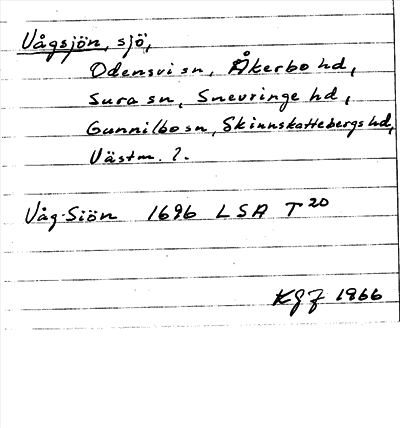 Vågsjön, sjö,
Odensvi sn, Åkerbo hd,
Sura sn, Snevringe hd,
Gunnilbo sn, Skinnskattebergs hd,
Västm. 2.
Våg-Siön 1696 LSA T 20
KGJ 1966